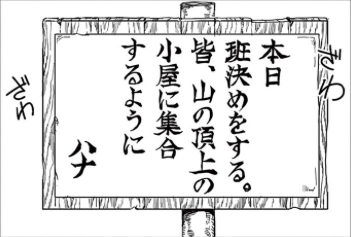 ざわ
本日
班決めをする。
皆、山の頂上の
小屋に集合
するように
ハナ
ざわ